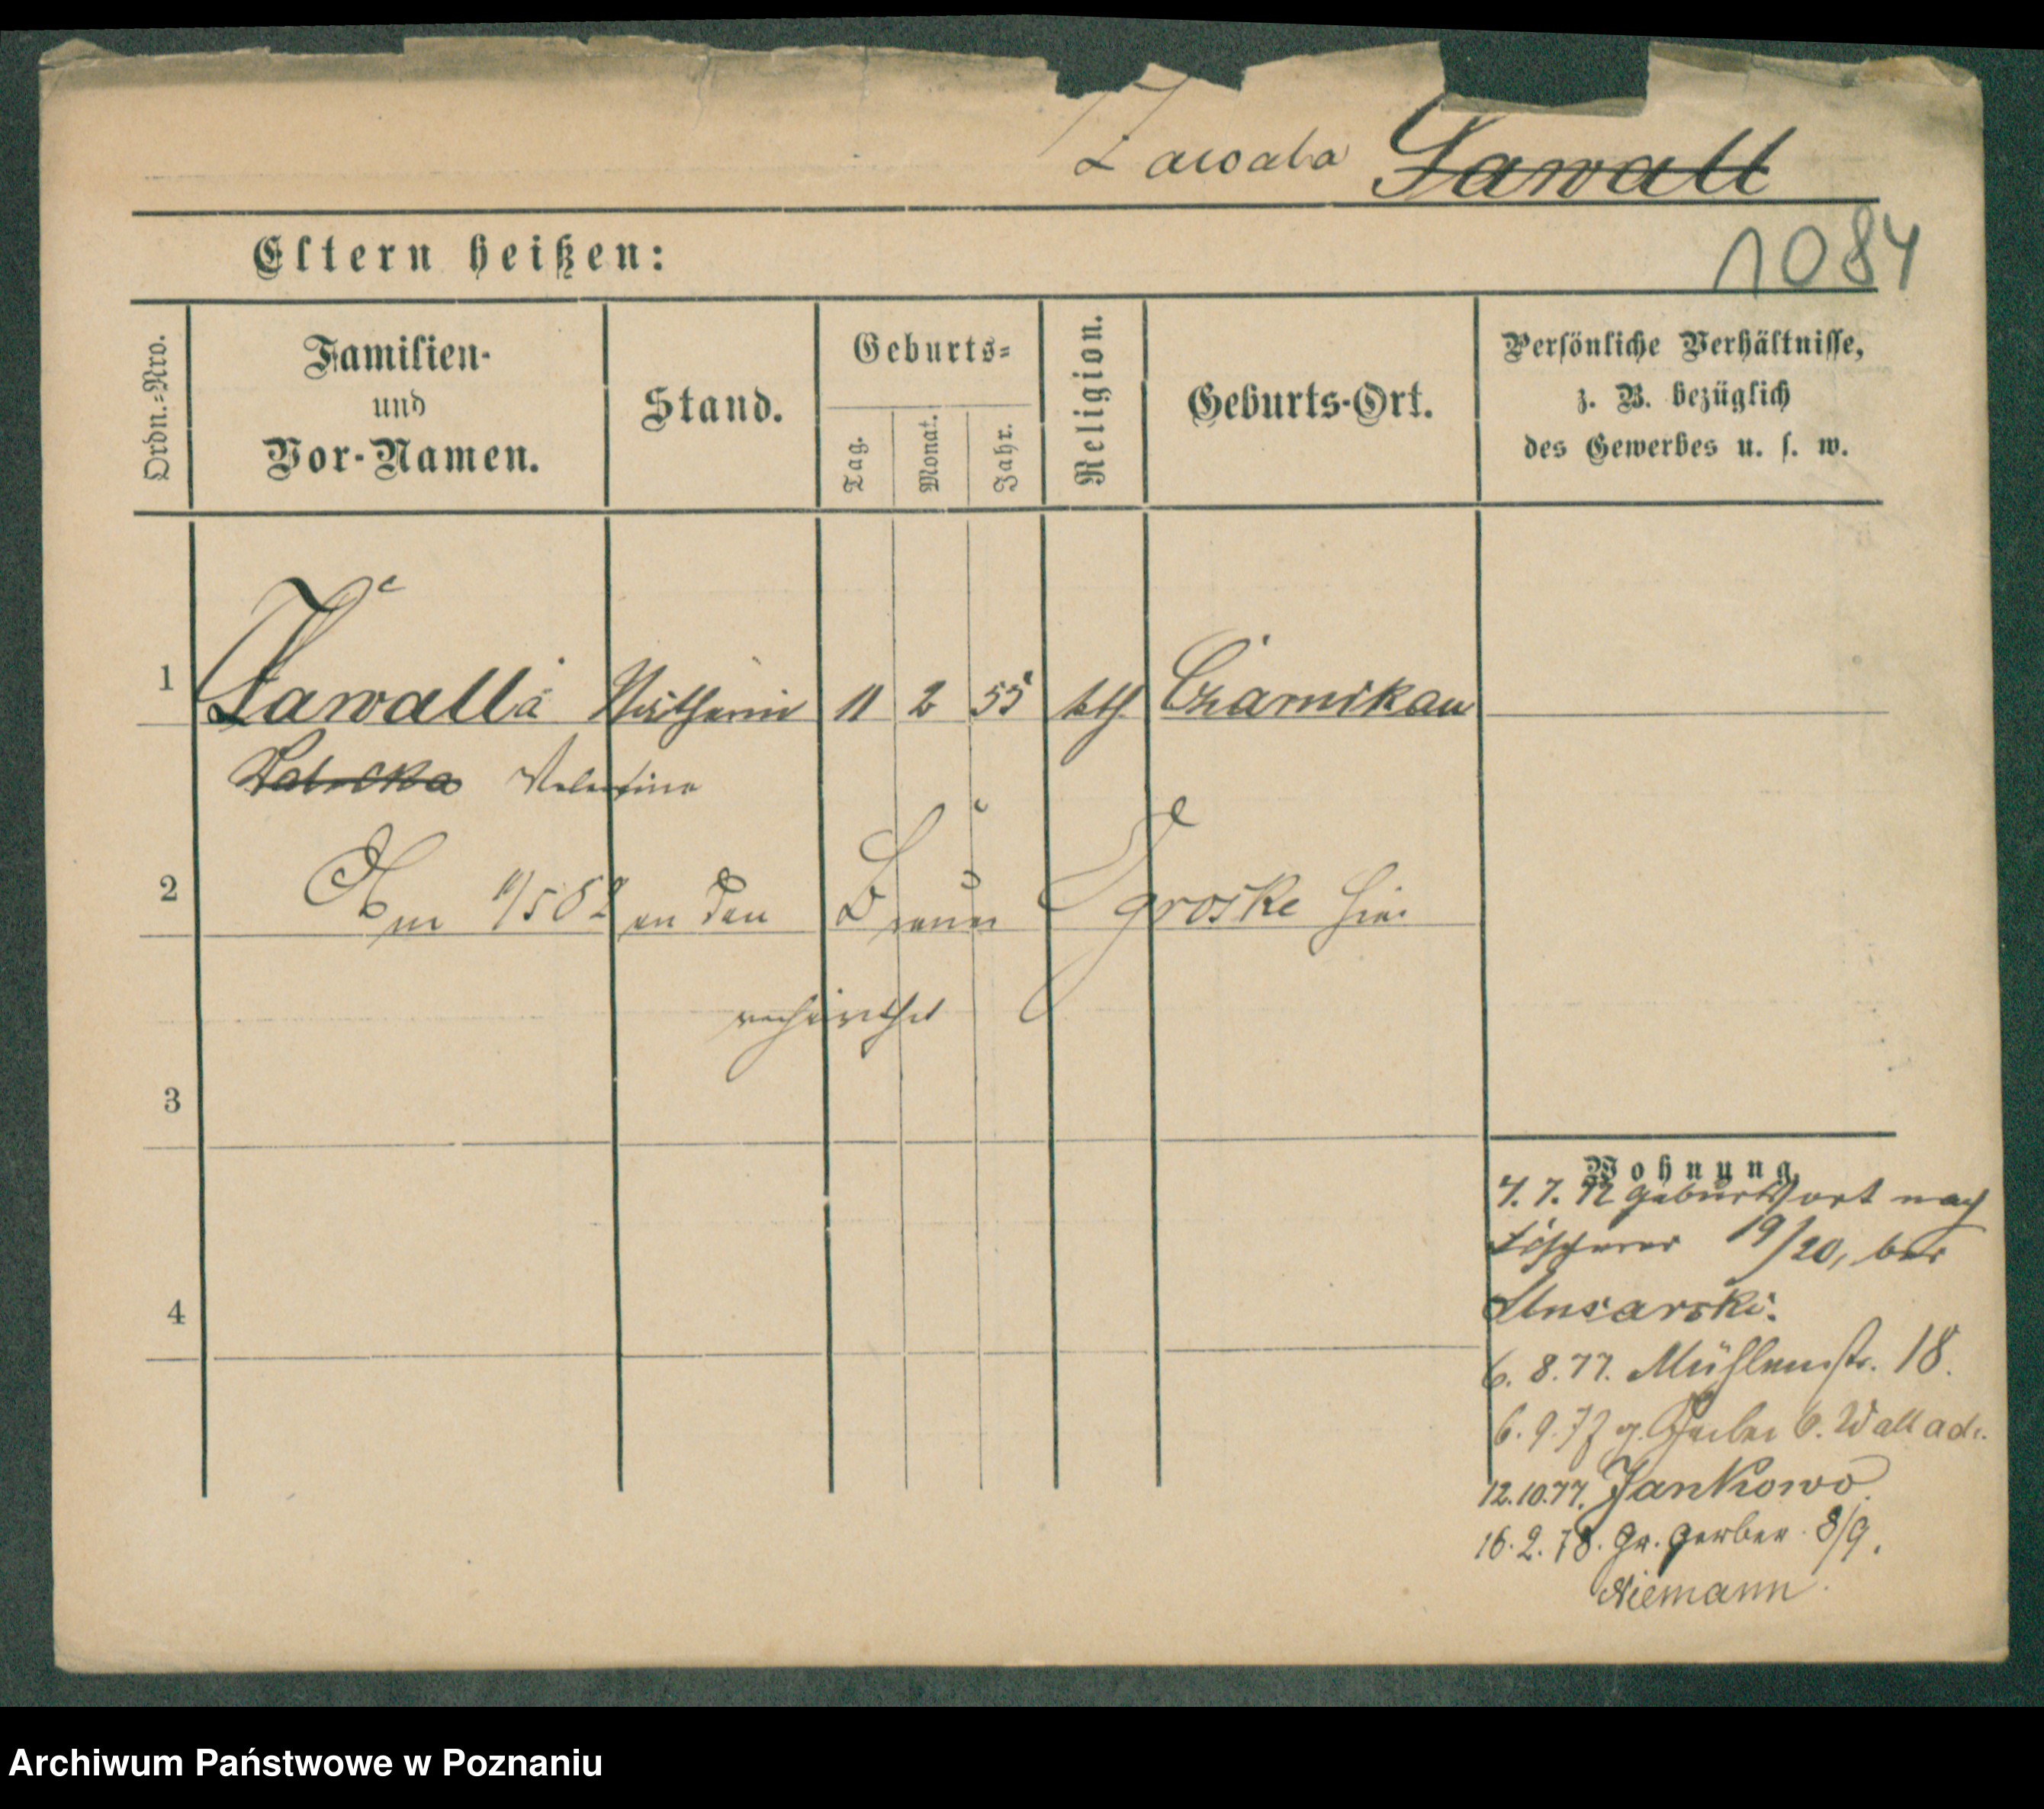 Zawada Zawall
1084
Eltern heißen:
Ordn.-Nro.
Familien- und Vor-Namen.
Stand.
Geburts-
Tag.
Monat.
Jahr.
Religion.
Geburts-Ort.
Persönliche Verhältnisse,
z. B. bezüglich
des Gewerbes u. s. w.
1 Zawalla 11 2 55 kth Czarnikau
Valentina
2 Am an den Groske hier
verheirathet
3
4
Wohnung.
4. 7. 77 Geburtsort nach
19/20, bei
Slusarski.
6. 8. 77. Mühlenstr. 18.
6. 9. 77 g. Gerber
12. 10. 77. Jankowo
16. 2. 78. Gr. Gerber 8/9.
Niemann.
Archiwum Państwowe w Poznaniu